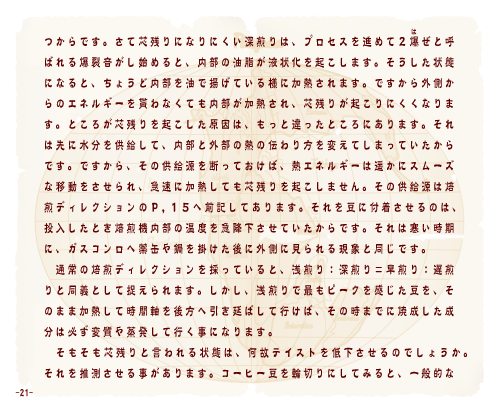 つからです。さて芯残りになりにくい深煎りは、プロセスを進めて２爆ぜと呼
ばれる爆裂音がし始めると、内部の油脂が液状化を起こします。そうした状態
になると、ちょうど内部を油で揚げている様に加熱されます。ですから外側か
らのエネルギーを貰わなくても内部が加熱され、芯残りが起こりにくくなりま
す。ところが芯残りを起こした原因は、もっと違ったところにあります。それ
は先に水分を供給して、内部と外部の熱の伝わり方を変えてしまっていたから
です。ですから、その供給源を断っておけば、熱エネルギーは遥かにスムーズ
な移動をさせられ、急速に加熱しても芯残りを起こしません。その供給源は焙
煎ディレクションのP,15へ前記してあります。それを豆に付着させるのは、
投入したとき焙煎機内部の温度を急降下させていたからです。それは寒い時期
に、ガスコンロへ薬缶や鍋を掛けた後に外側に見られる現象と同じです。
　通常の焙煎ディレクションを採っていると、浅煎り：深煎り＝早煎り：遅煎
りと同義として捉えられます。しかし、浅煎りで最もピークを感じた豆を、そ
のまま加熱して時間軸を後方へ引き延ばして行けば、その時までに焼成した成
分は必ず変質や蒸発して行く事になります。
　そもそも芯残りと言われる状態は、何故テイストを低下させるのでしょうか。
それを推測させる事があります。コーヒー豆を輪切りにしてみると、一般的な
-21-